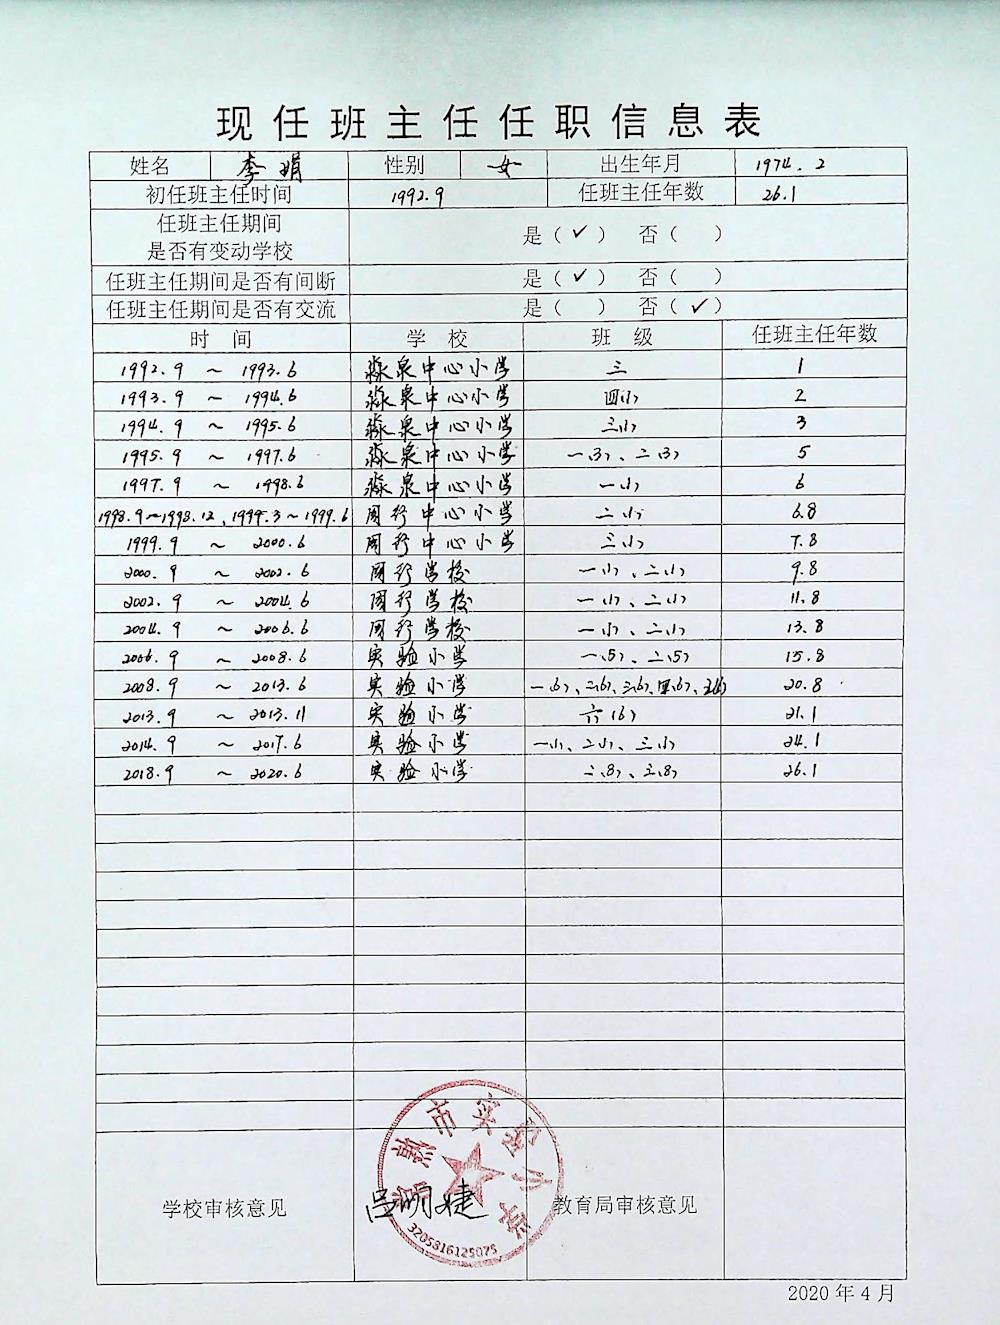 现任班主任任职信息表
姓名 李娟 性别 女 出生年月 1974.2
初任班主任时间 1992.9 任班主任年数 26.1
任班主任期间
是否有变动学校 是(✓) 否( )
任班主任期间是否有间断 是(✓) 否( )
任班主任期间是否有交流 是( ) 否(✓)
时 间 学 校 班 级 任班主任年数
1992.9 ~ 1993.6 淼泉中心小学 三 1
1993.9 ~ 1994.6 淼泉中心小学 四(1) 2
1994.9 ~ 1995.6 淼泉中心小学 三(1) 3
1995.9 ~ 1997.6 淼泉中心小学 一(3)、二(3) 5
1997.9 ~ 1998.6 淼泉中心小学 一(1) 6
1998.9~1998.12、1999.3~1999.6 周行中心小学 二(1) 6.8
1999.9 ~ 2000.6 周行中心小学 三(1) 7.8
2000.9 ~ 2002.6 周行学校 一(1)、二(1) 9.8
2002.9 ~ 2004.6 周行学校 一(1)、二(1) 11.8
2004.9 ~ 2006.6 周行学校 一(1)、二(1) 13.8
2006.9 ~ 2008.6 实验小学 一(5)、二(5) 15.8
2008.9 ~ 2013.6 实验小学 一(6)、二(6)、三(6)、四(6)、五(6) 20.8
2013.9 ~ 2013.11 实验小学 六(6) 21.1
2014.9 ~ 2017.6 实验小学 一(1)、二(1)、三(1) 24.1
2018.9 ~ 2020.6 实验小学 二(8)、三(8) 26.1
常熟市实验小学
3205816125075
学校审核意见 吕明捷 教育局审核意见
2020年4月